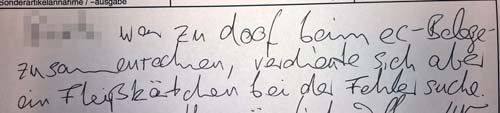 Sonderartikelannahme / -ausgabe
war zu doof beim ec-Belege-
zusammenrechnen, verdiente sich aber
ein Fleißkärtchen bei der Fehlersuche.